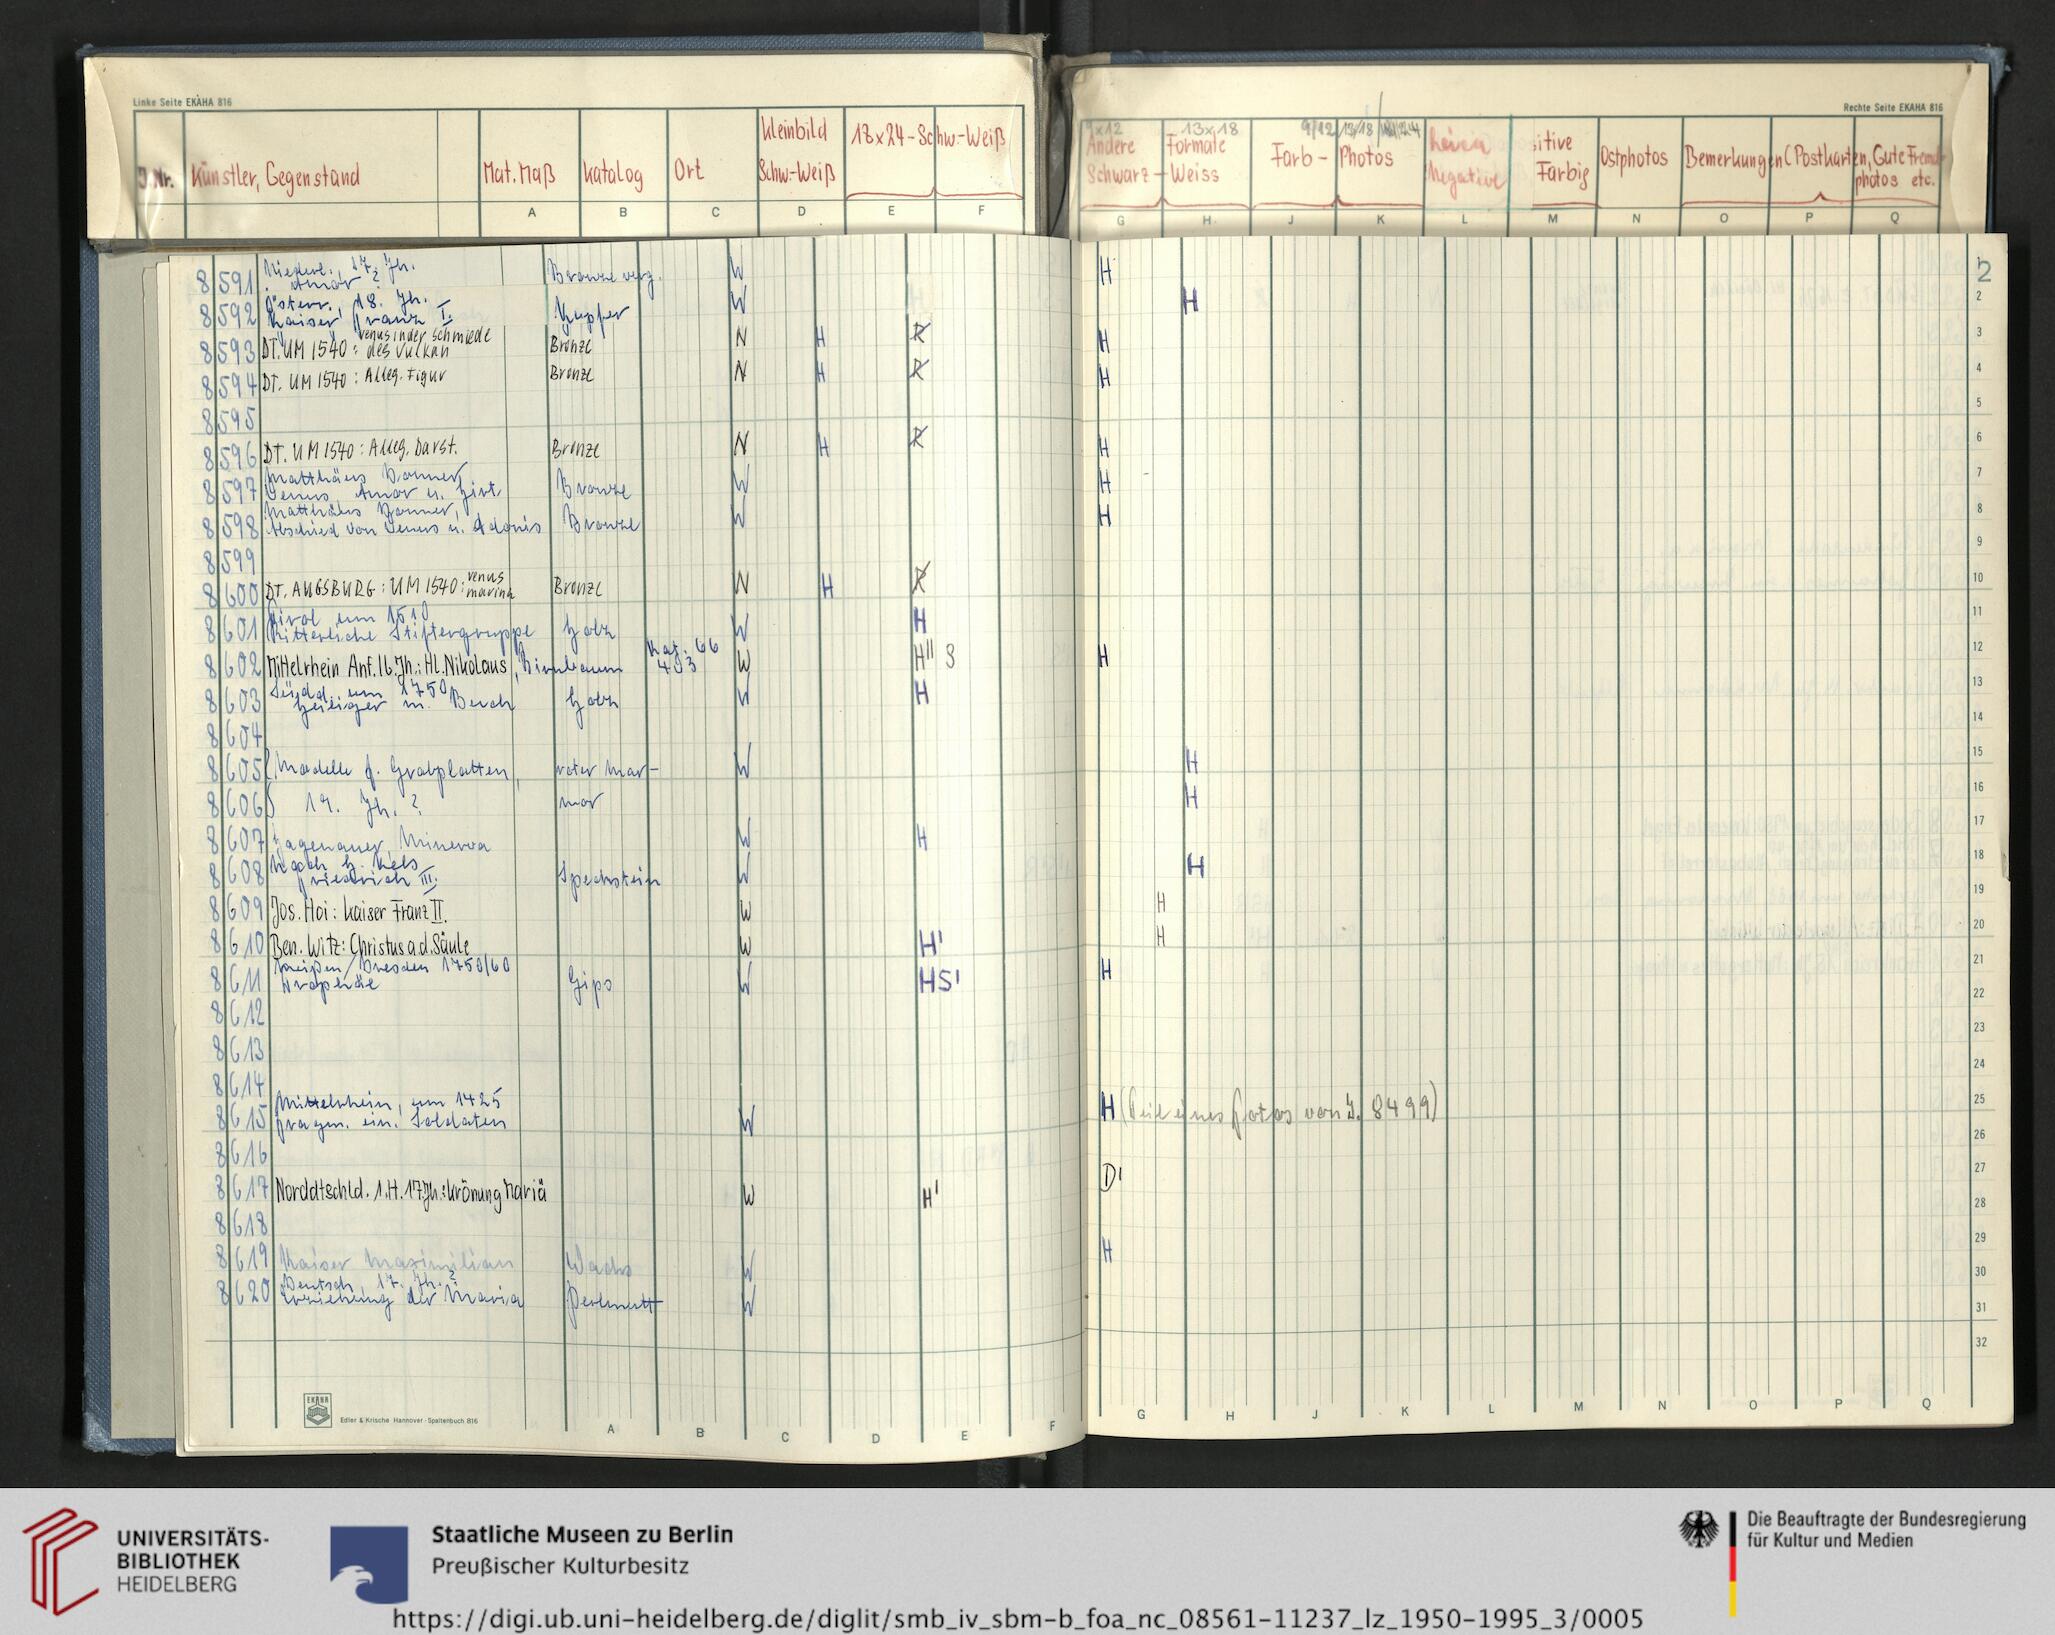 Linke Seite EKAHA 816
Rechte Seite EKAHA 816
J.Nr. Künstler, Gegenstand Mat. Maß Katalog Ort Kleinbild Schw.-Weiß 18x24-Schw.-Weiß
9x12 13x18 9/12 13/18
Andere Formate Schwarz-Weiss Farb-Photos Negative sitive Farbig Ostphotos Bemerkungen (Postkarten, Gute Fremdphotos etc.
A B C D E F G H J K L M N O P Q
2
8591 Niederl. 17. Jh. Amor ? Bronze verg. W H 1
8592 Österr. 18. Jh. Kaiser Franz I. Kupfer W H 2
8593 DT. UM 1540: Venus in der Schmiede des Vulkan Bronze N H R H 3
8594 DT. UM 1540: Alleg. Figur Bronze N H R H 4
8595 5
8596 DT. UM 1540: Alleg. Darst. Bronze N H R H 6
8597 Matthäus Donner, Venus, Amor u. Hirt Bronze W H 7
8598 Matthäus Donner, Abschied von Venus u. Adonis Bronze W H 8
8599 9
8600 DT. AUGSBURG: UM 1540: Venus marina Bronze N H R 10
8601 Tirol um 1510 Ritterliche Stiftergruppe Holz W H 11
8602 Mittelrhein Anf. 16. Jh.: Hl. Nikolaus, Birnbaum Kat. 66 403 W H" 3 H 12
8603 Südd. um 1750 Heiliger m. Buch Holz W H 13
8604 14
8605 Modelle f. Grabplatten, roter Mar- W H 15
8606 19. Jh. ? mor H 16
8607 Hagenauer, Minerva W H 17
8608 Nach H. Kels Friedrich III. Speckstein W H 18
8609 Jos. Hoi: Kaiser Franz II. W H 19
8610 Ben. Witz: Christus a.d. Säule W H' H 20
8611 Meißen/Dresden 1750/60 Draperie Gips W HS' H 21
8612 22
8613 23
8614 24
8615 Mittelrhein, um 1425 Fragm. ein. Soldaten W H (Teil eines Fotos von J. 8499) 25
8616 26
8617 Norddtschld. 1.H. 17Jh.: Krönung Mariä W H' D' 27
8618 28
8619 Kaiser Maximilian Wachs W H 29
8620 Deutsch, 17. Jh. ? Erziehung der Maria Perlmutt W 30
31
32
EKAHA
Edler & Krische Hannover · Spaltenbuch 816
A B C D E F G H J K L M N O P Q
UNIVERSITÄTS-
BIBLIOTHEK
HEIDELBERG
Staatliche Museen zu Berlin
Preußischer Kulturbesitz
Die Beauftragte der Bundesregierung
für Kultur und Medien
https://digi.ub.uni-heidelberg.de/diglit/smb_iv_sbm-b_foa_nc_08561-11237_lz_1950-1995_3/0005